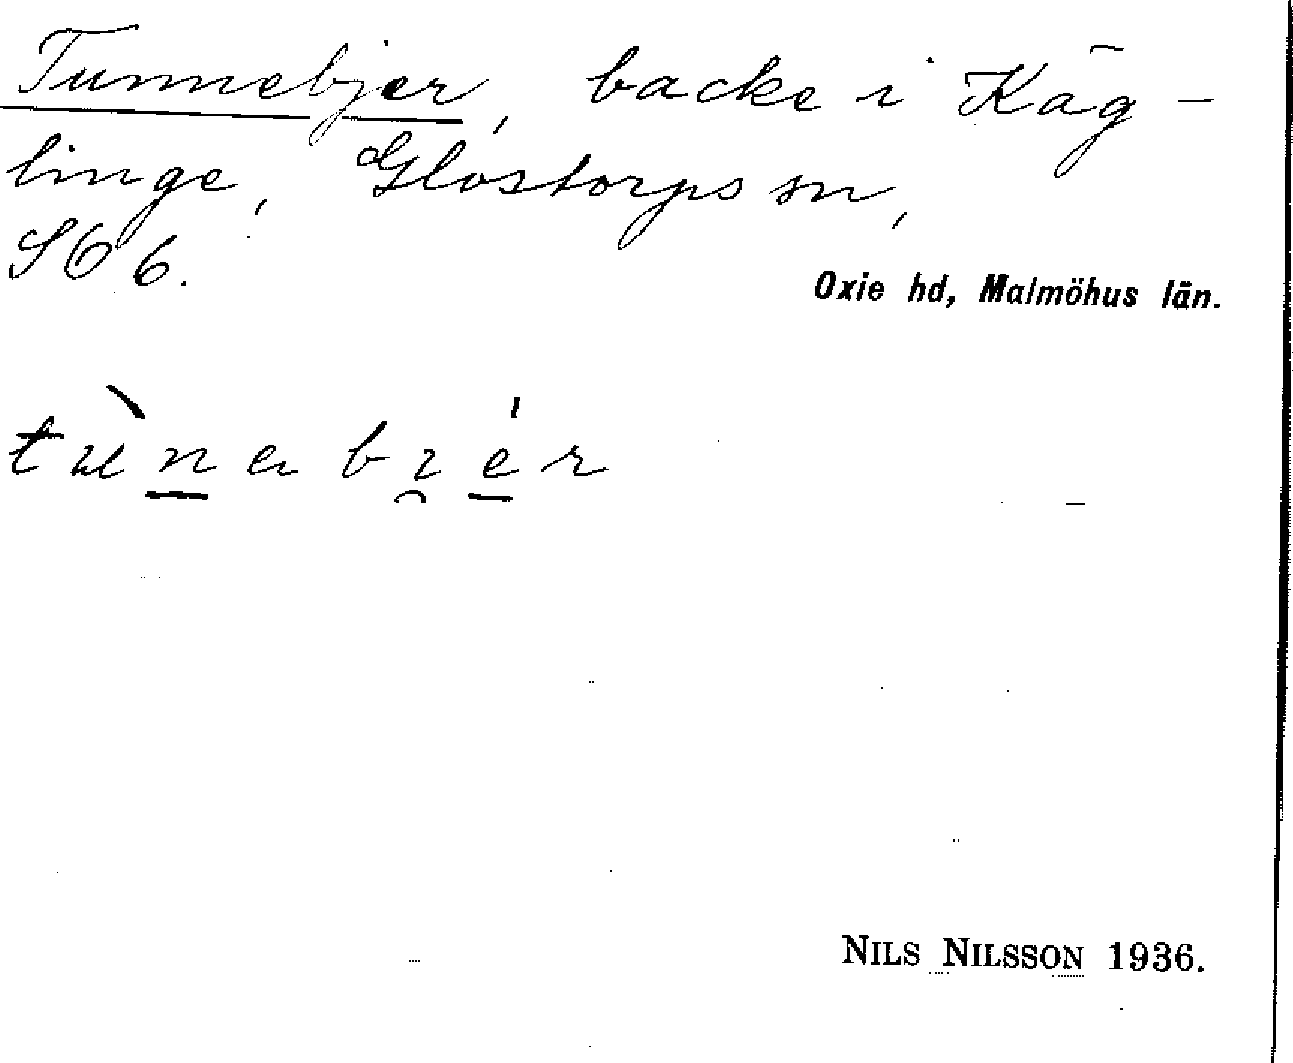 Tunnebjer, backe i Käg-
linge, Glostorps sn,
SO 6.
Oxie hd, Malmöhus län.
NILS NILSSON 1936.